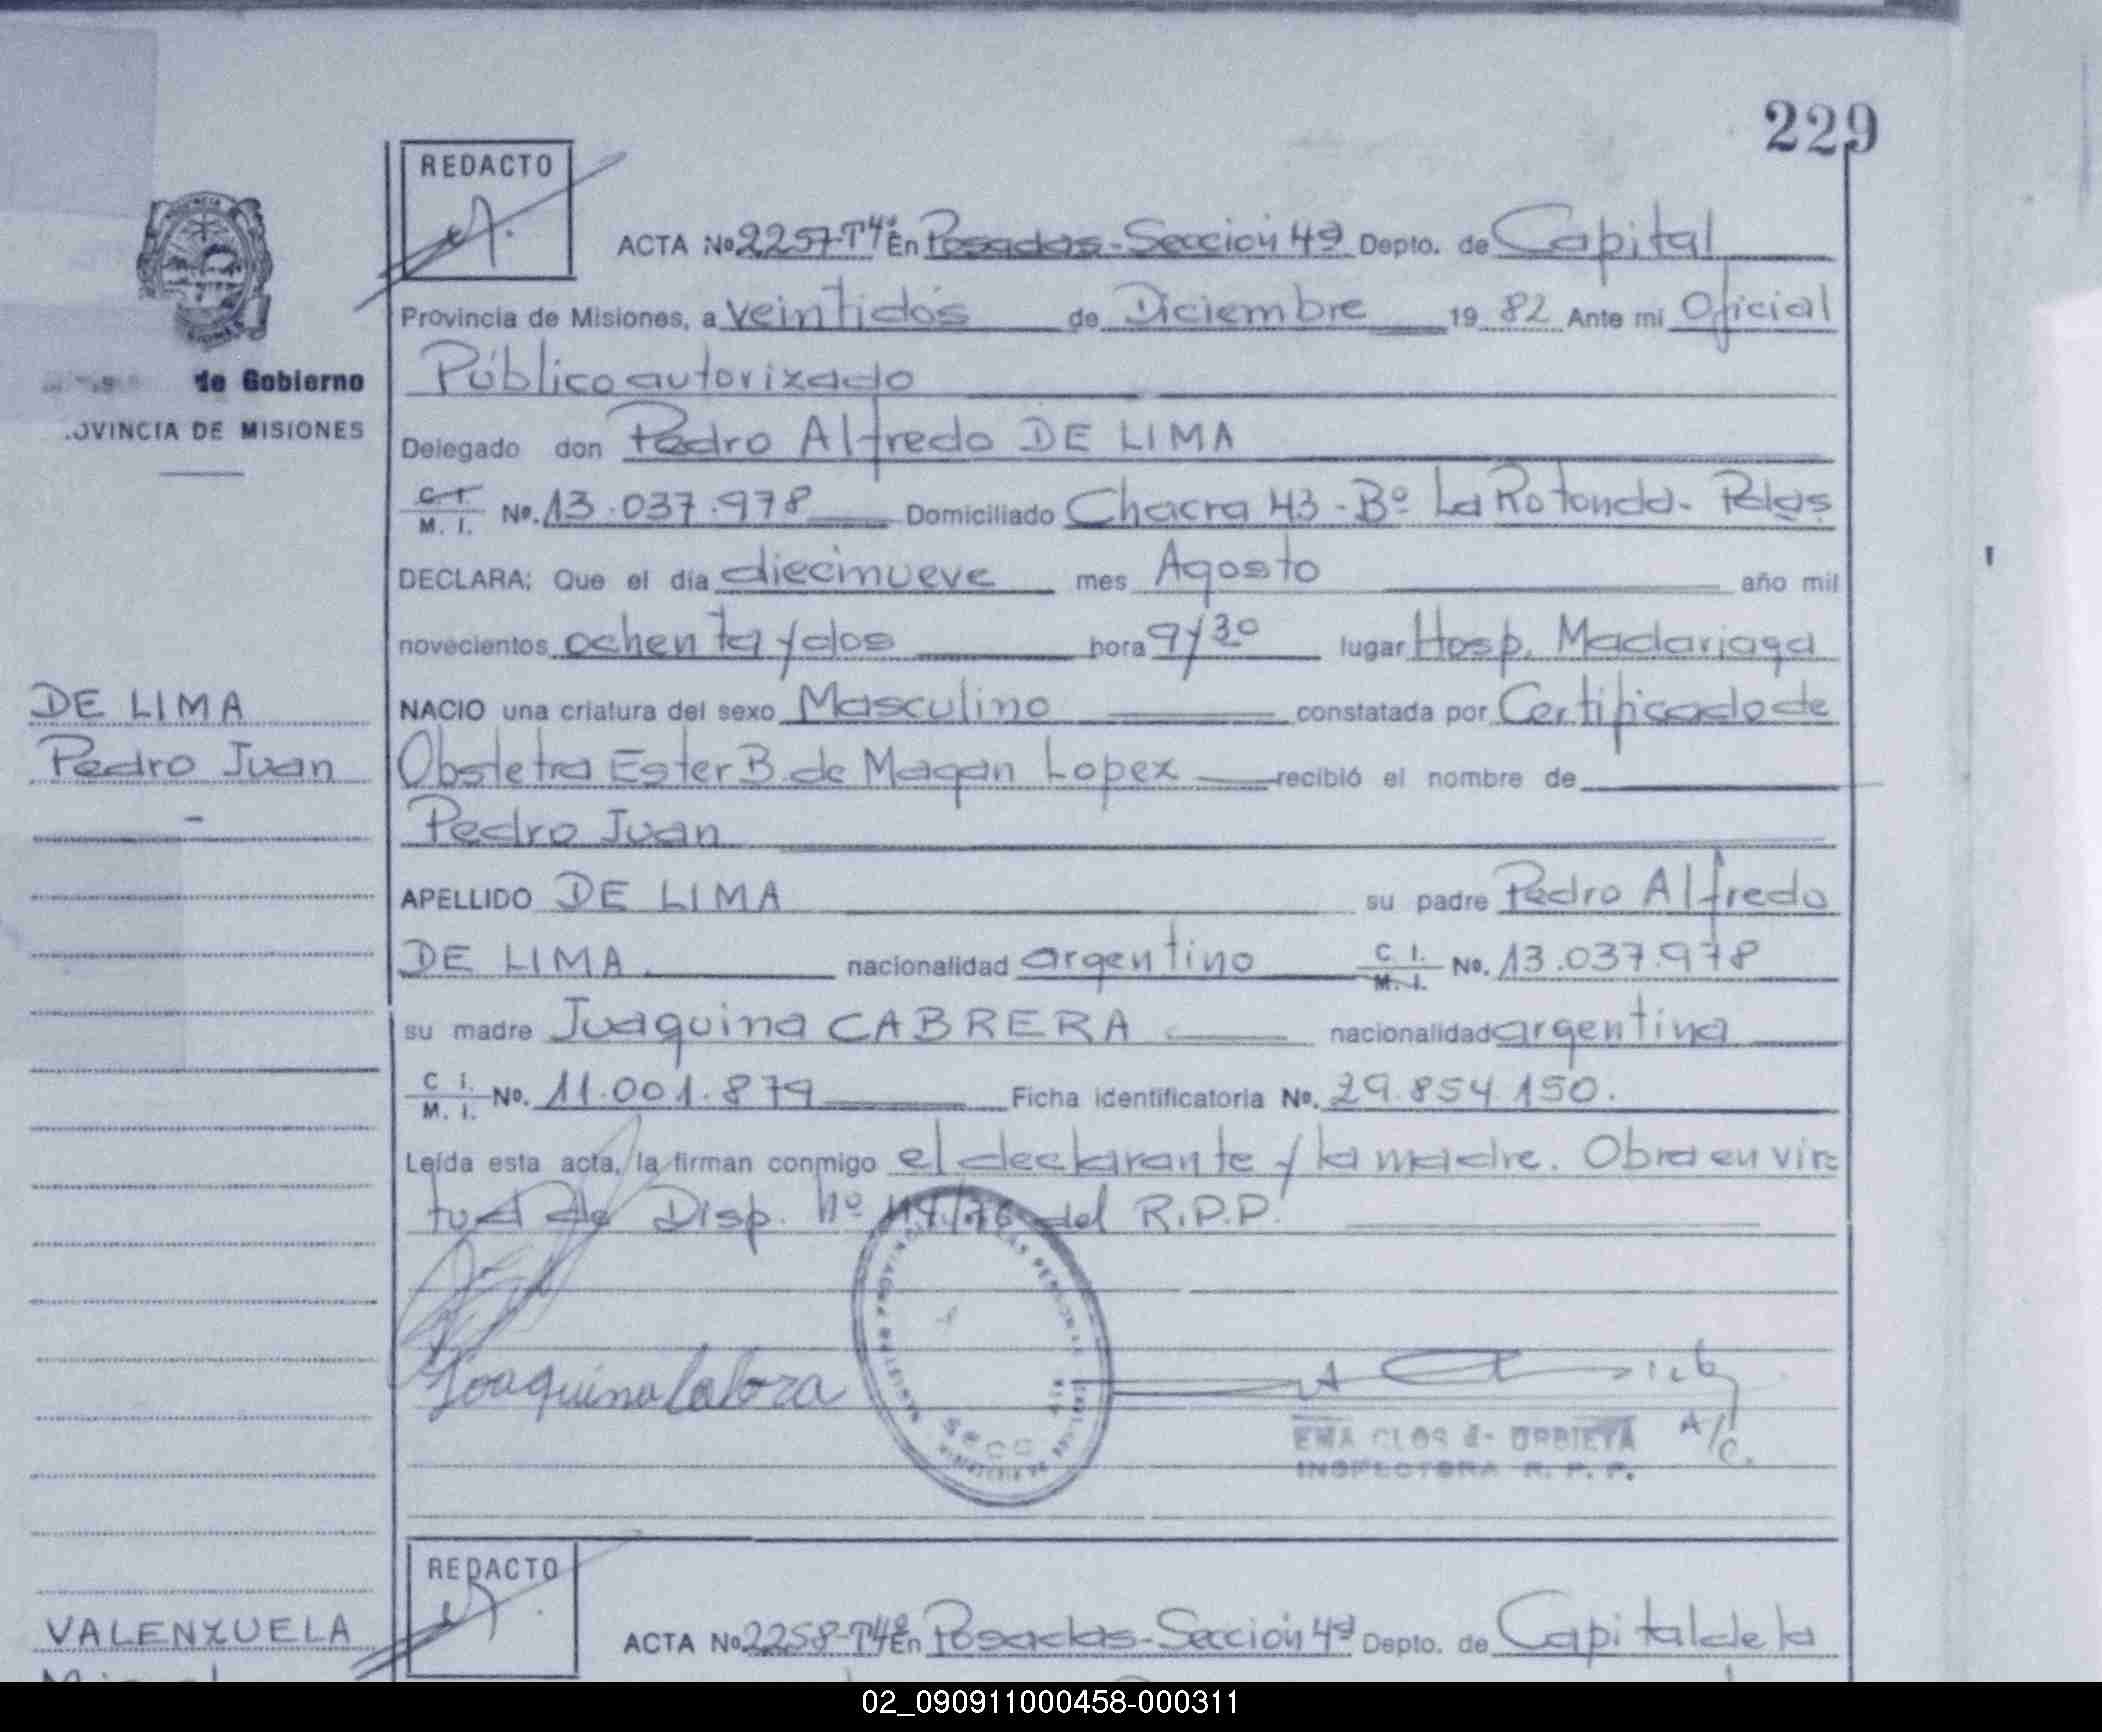 229
REDACTO
ACTA No 2257-T4º En Posadas-Sección 4a Depto. de Capital
Provincia de Misiones, a veintidós de Diciembre 19 82 Ante mi Oficial
de Gobierno
Público autorizado
OVINCIA DE MISIONES
Delegado don Pedro Alfredo DE LIMA
C. I. M. I. No. 13.037.978 Domiciliado Chacra 43-Bº La Rotonda- Pdas
DECLARA: Que el día diecinueve mes Agosto año mil
novecientos ochenta y dos hora 9 y 30 lugar Hosp. Madariaga
DE LIMA
NACIO una criatura del sexo Masculino constatada por Certificado de
Pedro Juan
Obstetra Ester B. de Magan Lopez recibió el nombre de
Pedro Juan
APELLIDO DE LIMA su padre Pedro Alfredo
DE LIMA nacionalidad argentino C. I. M. I. No. 13.037.978
su madre Juaquina CABRERA nacionalidad argentina
C. I. M. I. No. 11.001.879 Ficha identificatoria No. 29.854.150.
Leída esta acta, la firman conmigo el declarante y la madre. Obra en vir=
tud de Disp. nº /76 del R.P.P.
Joaquina
EMA CLOS de URBIETA A/C.
INSPECTORA R. P. P.
REDACTO
VALENZUELA
ACTA No 2258-T4º En Posadas-Sección 4a Depto. de Capital de la
02_090911000458-000311